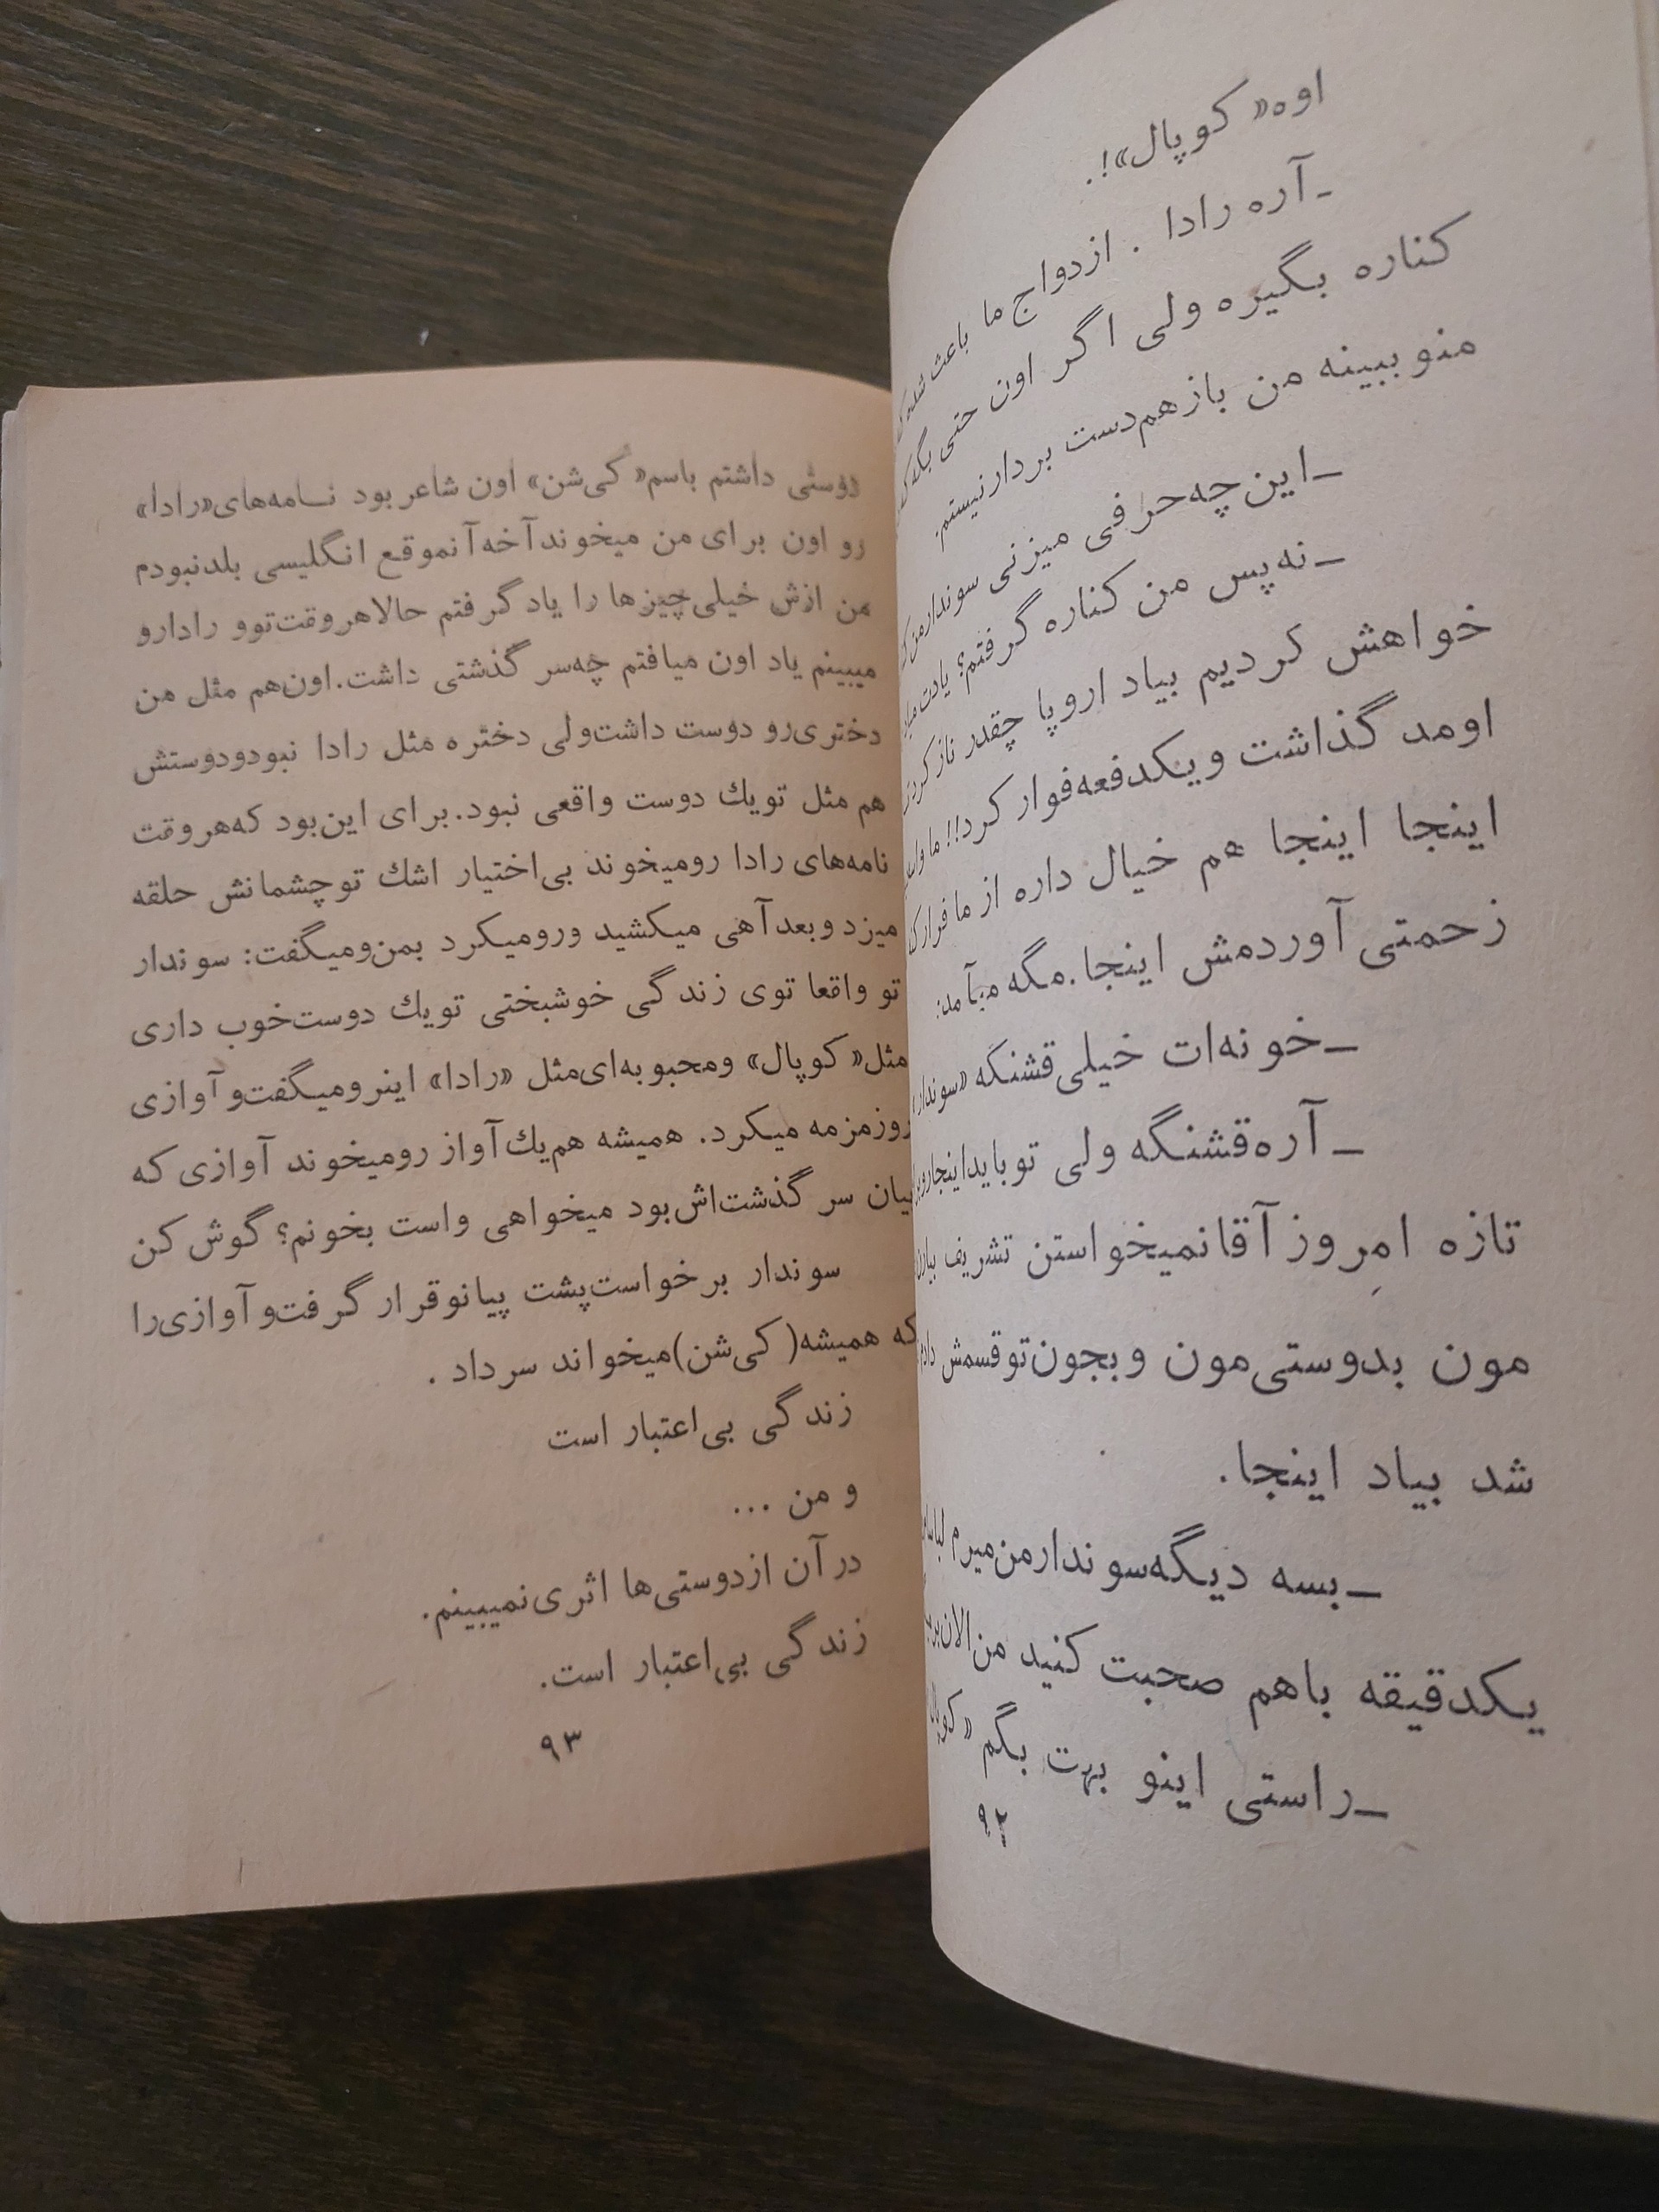 اوه «کوپال»!.
ـ آره رادا . ازدواج ما باعث شده
کناره بگیره ولی اگر اون حتی بگه
منو ببینه من بازهم دست بردار نیستم.
ـ این چه حرفی میزنی سوندار من
ـ نه پس من کناره گرفتم؟ یادت
خواهش کردیم بیاد اروپا چقدر ناز کرد
اومد گذاشت و یکدفعه فوار کرد!! ما
اینجا اینجا هم خیال داره از ما فرار
زحمتی آوردمش اینجا. مگه میآمد.
ـ خونه‌ات خیلی قشنگه «سوندار»
ـ آره قشنگه ولی تو باید اینجا رو
تازه امروز آقا نمیخواستن تشریف بیارن
مون بدوستی‌مون و بجون تو قسمش دادم
شد بیاد اینجا.
ـ بسه دیگه سوندار من میرم
یکدقیقه باهم صحبت کنید من الان
ـ راستی اینو بهت بگم «کوپال
۹۲
دوستی داشتم باسم «کی‌شن» اون شاعر بود نامه‌های «رادا»
رو اون برای من میخوند آخه آنموقع انگلیسی بلد نبودم
من ازش خیلی چیزها را یاد گرفتم حالا هر وقت تو و رادارو
میبینم یاد اون میافتم چه سر گذشتی داشت. اون هم مثل من
دختری رو دوست داشت ولی دختره مثل رادا نبود و دوستش
هم مثل تو یك دوست واقعی نبود. برای این بود که هر وقت
نامه‌های رادا رو میخوند بی‌اختیار اشك تو چشمانش حلقه
میزد و بعد آهی میکشید و رو میکرد بمن و میگفت: سوندار
تو واقعا توی زندگی خوشبختی تو یك دوست خوب داری
مثل «کوپال» و محبوبه‌ای مثل «رادا» اینرو میگفت و آوازی
رو زمزمه میکرد. همیشه هم یك آواز رو میخوند آوازی که
بیان سر گذشت‌اش بود میخواهی واست بخونم؟ گوش کن
سوندار برخواست پشت پیانو قرار گرفت و آوازی را
که همیشه (کی‌شن) میخواند سر داد .
زندگی بی‌اعتبار است
و من ...
در آن از دوستی‌ها اثری نمیبینم.
زندگی بی‌اعتبار است.
۹۳